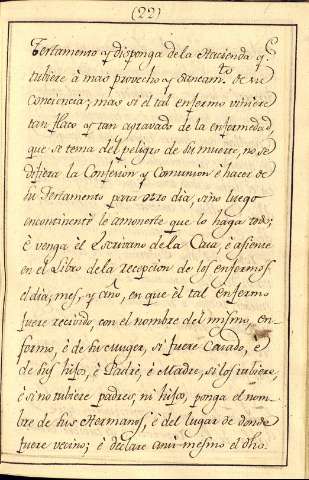 (22)
Testamento y disponga de la Hacienda q.e
tubiere à mas provecho y de su
conciencia; mas si el tal enfermo viniere
tan flaco y tan agravado de la enfermedad,
que se tema del peligro de su muerte, no se
difiera la Confesion y Comunion è hacer de
su Testamento para otro dia, sino luego
encontinente le amoneste que lo haga todo;
è venga el Escrivano de la Casa, è asiente
en el Libro de la recepcion de los enfermos
el dia, mes, y año, en que èl tal enfermo
fuere recivido, con el nombre del mismo, en-
fermo, è de su Muger, si fuere Casado, è
de sus hijos, è Padre, è Madre, si los tubiere,
è si no tubiere padres, ni hijos, ponga el nom-
bre de sus Hermanos, è del lugar de donde
fuere vecino; è declare ansi mesmo el dho.